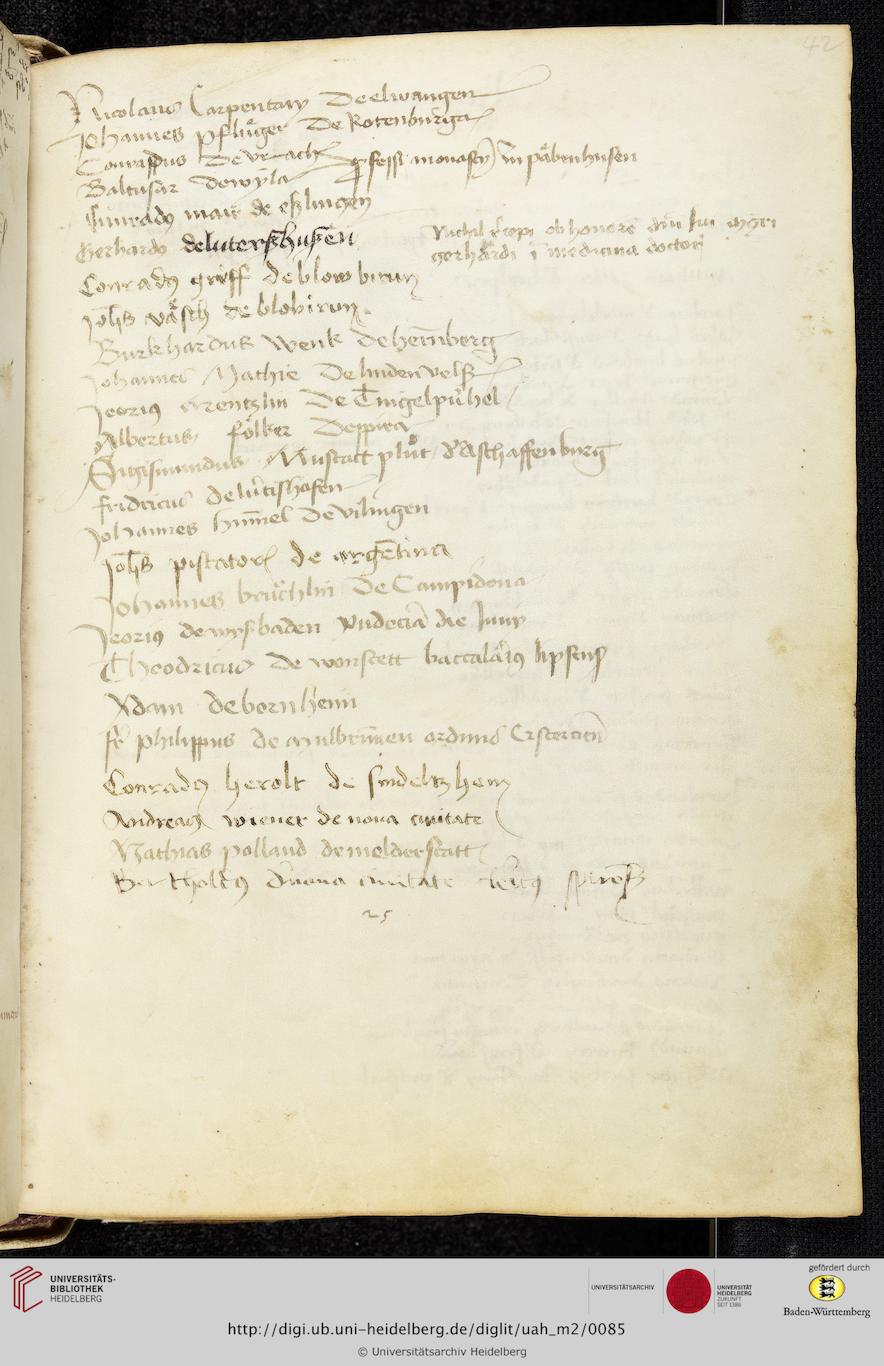 42
Nicolaus Carpentarij De elwangen
Johannes pflůger De Rotenburga
Conradus De vrach professi monasterij in påbenhusen
Baltasar de wyla
Cunradus mair de eslingen
Gerhardo de luterszhusen
Nichil recepi ob honorem dni sui mgri
gerhardi in medicina doctor
Conradus gröff de blowbirun
Johs väsch de blobirun
Burkhardus wenk de hernberg
Johannes Mathie De lindenvels
Jeorius wrentzlin De Tingelpuhel
Albertus folker De spira
Sigismundus Mustatt plut d' Aschaffenburg
fridricus de
Johannes himel De vilingen
Johs pistatoris de argentina
Johannes bruchlin De Campidona
Jeorius de wysbaden vndecia die Junij
Theodricus de worstett baccalarius lipsens
Adam de bornheim
fr philippus de mulbrunnen ordinis Cistercien
Conradus herolt de sindeltzhem
Andreas wiener de noua ciuitate
Mathias polland de melderstatt
Bertholdus d noua ciuitate clericus spirens
25
UNIVERSITÄTS-
BIBLIOTHEK
HEIDELBERG
UNIVERSITÄTSARCHIV
UNIVERSITÄT
HEIDELBERG
ZUKUNFT
SEIT 1386
gefördert durch
Baden-Württemberg
http://digi.ub.uni-heidelberg.de/diglit/uah_m2/0085
© Universitätsarchiv Heidelberg